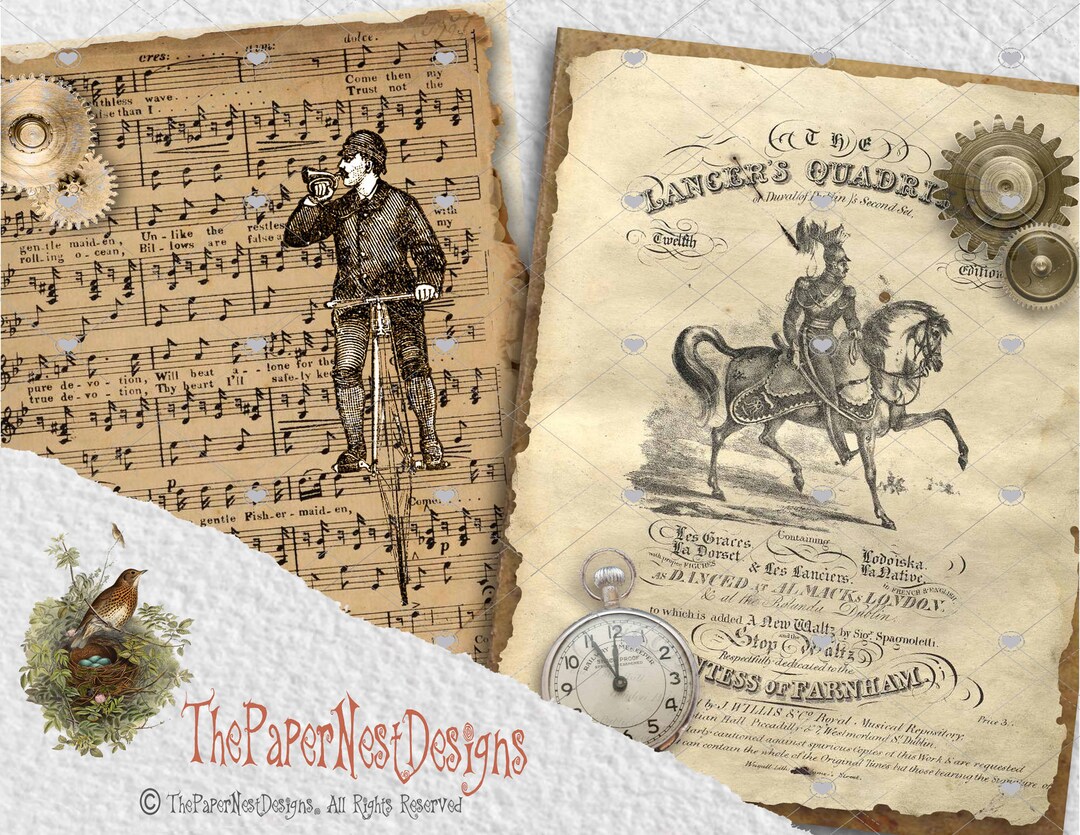 cres:
dolce.
Come then my
Trust not the
thless wave
lse than I
with
my
gen-tle maid-en, Un-like the restless
roll-ing o-cean, Bil-lows are false a
pure de-vo-tion, Will beat a-lone for the
true de-vo-tion, Thy heart I'll safe-ly ke
p
Come
gentle Fish-er-maid-en,
p
Co
THE
LANCER'S QUADRI
or Duval of Dublin's Second Set.
Twelfth
Edition
Containing
Les Graces, Lodoiska.
La Dorset La Native,
with proper FIGURES & Les Lanciers. in FRENCH & ENGLISH
AS DANCED AT ALMACKS LONDON,
& at the Rotunda Dublin.
to which is added A New Waltz by Sigr. Spagnoletti.
and the
Stop Waltz
Respectfully dedicated to the
TESS OF FARNHAM.
Price 3/.
by J. WILLIS & Co. Royal Musical Repository,
ian Hall Piccadilly & 7 Westmorland St. Dublin.
larly cautioned against spurious Copies of this Work & are requested
can contain the whole of the Original Tunes but those bearing the Signature of
12
1
2
3
4
5
8
9
10
PROOF
ThePaperNestDesigns
© ThePaperNestDesigns. All Rights Reserved